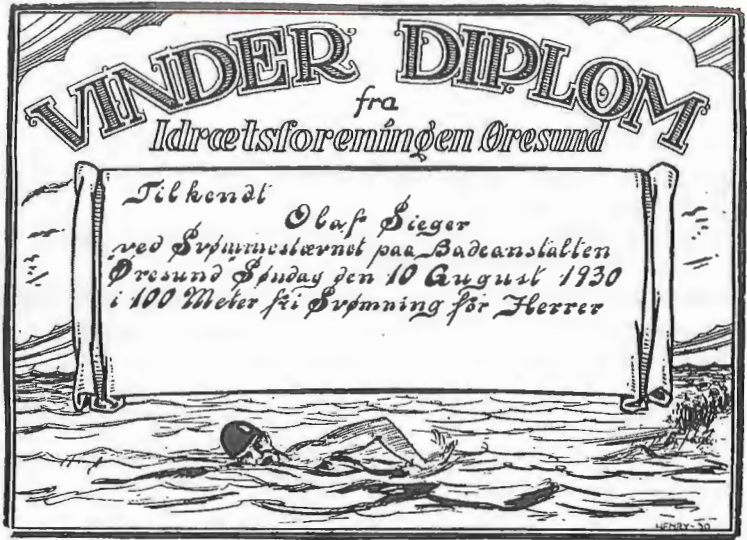 VINDER DIPLOM
fra
Idrætsforeningen Øresund
Tilkendt
Olaf Sieger
ved Svømmestævnet paa Badeanstalten
Øresund Søndag den 10 August 1930
i 100 Meter fri Svømning for Herrer
HENRY-30